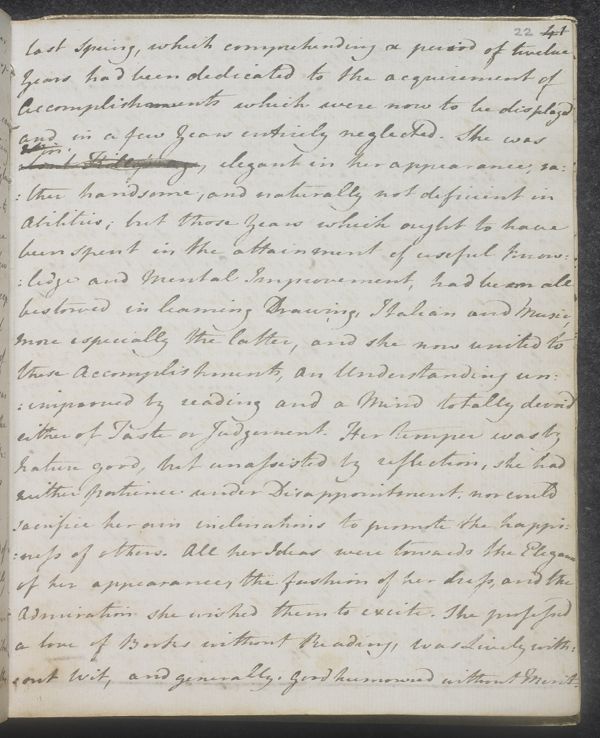 22 41
last Spring, which comprehending a period of twelve
Years had been dedicated to the acquirement of
Accomplishments which were now to be displayed
and in a few Years entirely neglected. She was
, elegant in her appearance, ra:
:ther handsome, and naturally not deficient in
Abilities; but those Years which ought to have
been spent in the attainment of useful know:
:ledge and Mental Improvement, had been all
bestowed in learning Drawing, Italian and Music,
more especially the latter, and she now united to
these Accomplishments, an Understanding un:
:improved by reading and a Mind totally devoid
either of Taste or Judgement. Her temper was by
Nature good, but unassisted by reflection, she had
neither patience under Disappointment, nor could
sacrifice her own inclinations to promote the happi:
:ness of others. All her Ideas were towards the Elegance
of her appearance, the fashion of her dress, and the
Admiration she wished them to excite. She professed
a love of Books without Reading, was Lively with:
:out Wit, and generally good humoured without Merit.